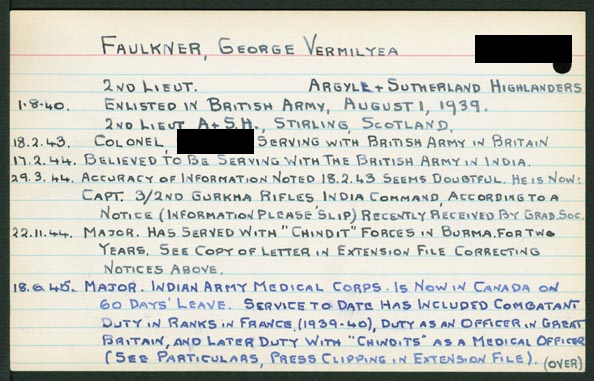 FAULKNER, GEORGE VERMILYEA
2ND LIEUT. ARGYLE + SUTHERLAND HIGHLANDERS
1·8·40. ENLISTED IN BRITISH ARMY, AUGUST 1, 1939.
2ND LIEUT A+S.H., STIRLING, SCOTLAND.
18.2.43. COLONEL, SERVING WITH BRITISH ARMY IN BRITAIN
17.2.44. BELIEVED TO BE SERVING WITH THE BRITISH ARMY IN INDIA.
29.3.44. ACCURACY OF INFORMATION NOTED 18.2.43 SEEMS DOUBTFUL. HE IS NOW:
CAPT. 3/2ND GURKHA RIFLES, INDIA COMMAND, ACCORDING TO A
NOTICE (INFORMATION PLEASE SLIP) RECENTLY RECEIVED BY GRAD. SOC.
22.11.44. MAJOR. HAS SERVED WITH "CHINDIT" FORCES IN BURMA. FOR TWO
YEARS. SEE COPY OF LETTER IN EXTENSION FILE CORRECTING
NOTICES ABOVE.
18.6.45. MAJOR. INDIAN ARMY MEDICAL CORPS. IS NOW IN CANADA ON
60 DAYS' LEAVE. SERVICE TO DATE HAS INCLUDED COMBATANT
DUTY IN RANKS IN FRANCE, (1939-40), DUTY AS AN OFFICER IN GREAT
BRITAIN, AND LATER DUTY WITH "CHINDITS" AS A MEDICAL OFFICER
(SEE PARTICULARS, PRESS CLIPPING IN EXTENSION FILE). (OVER)